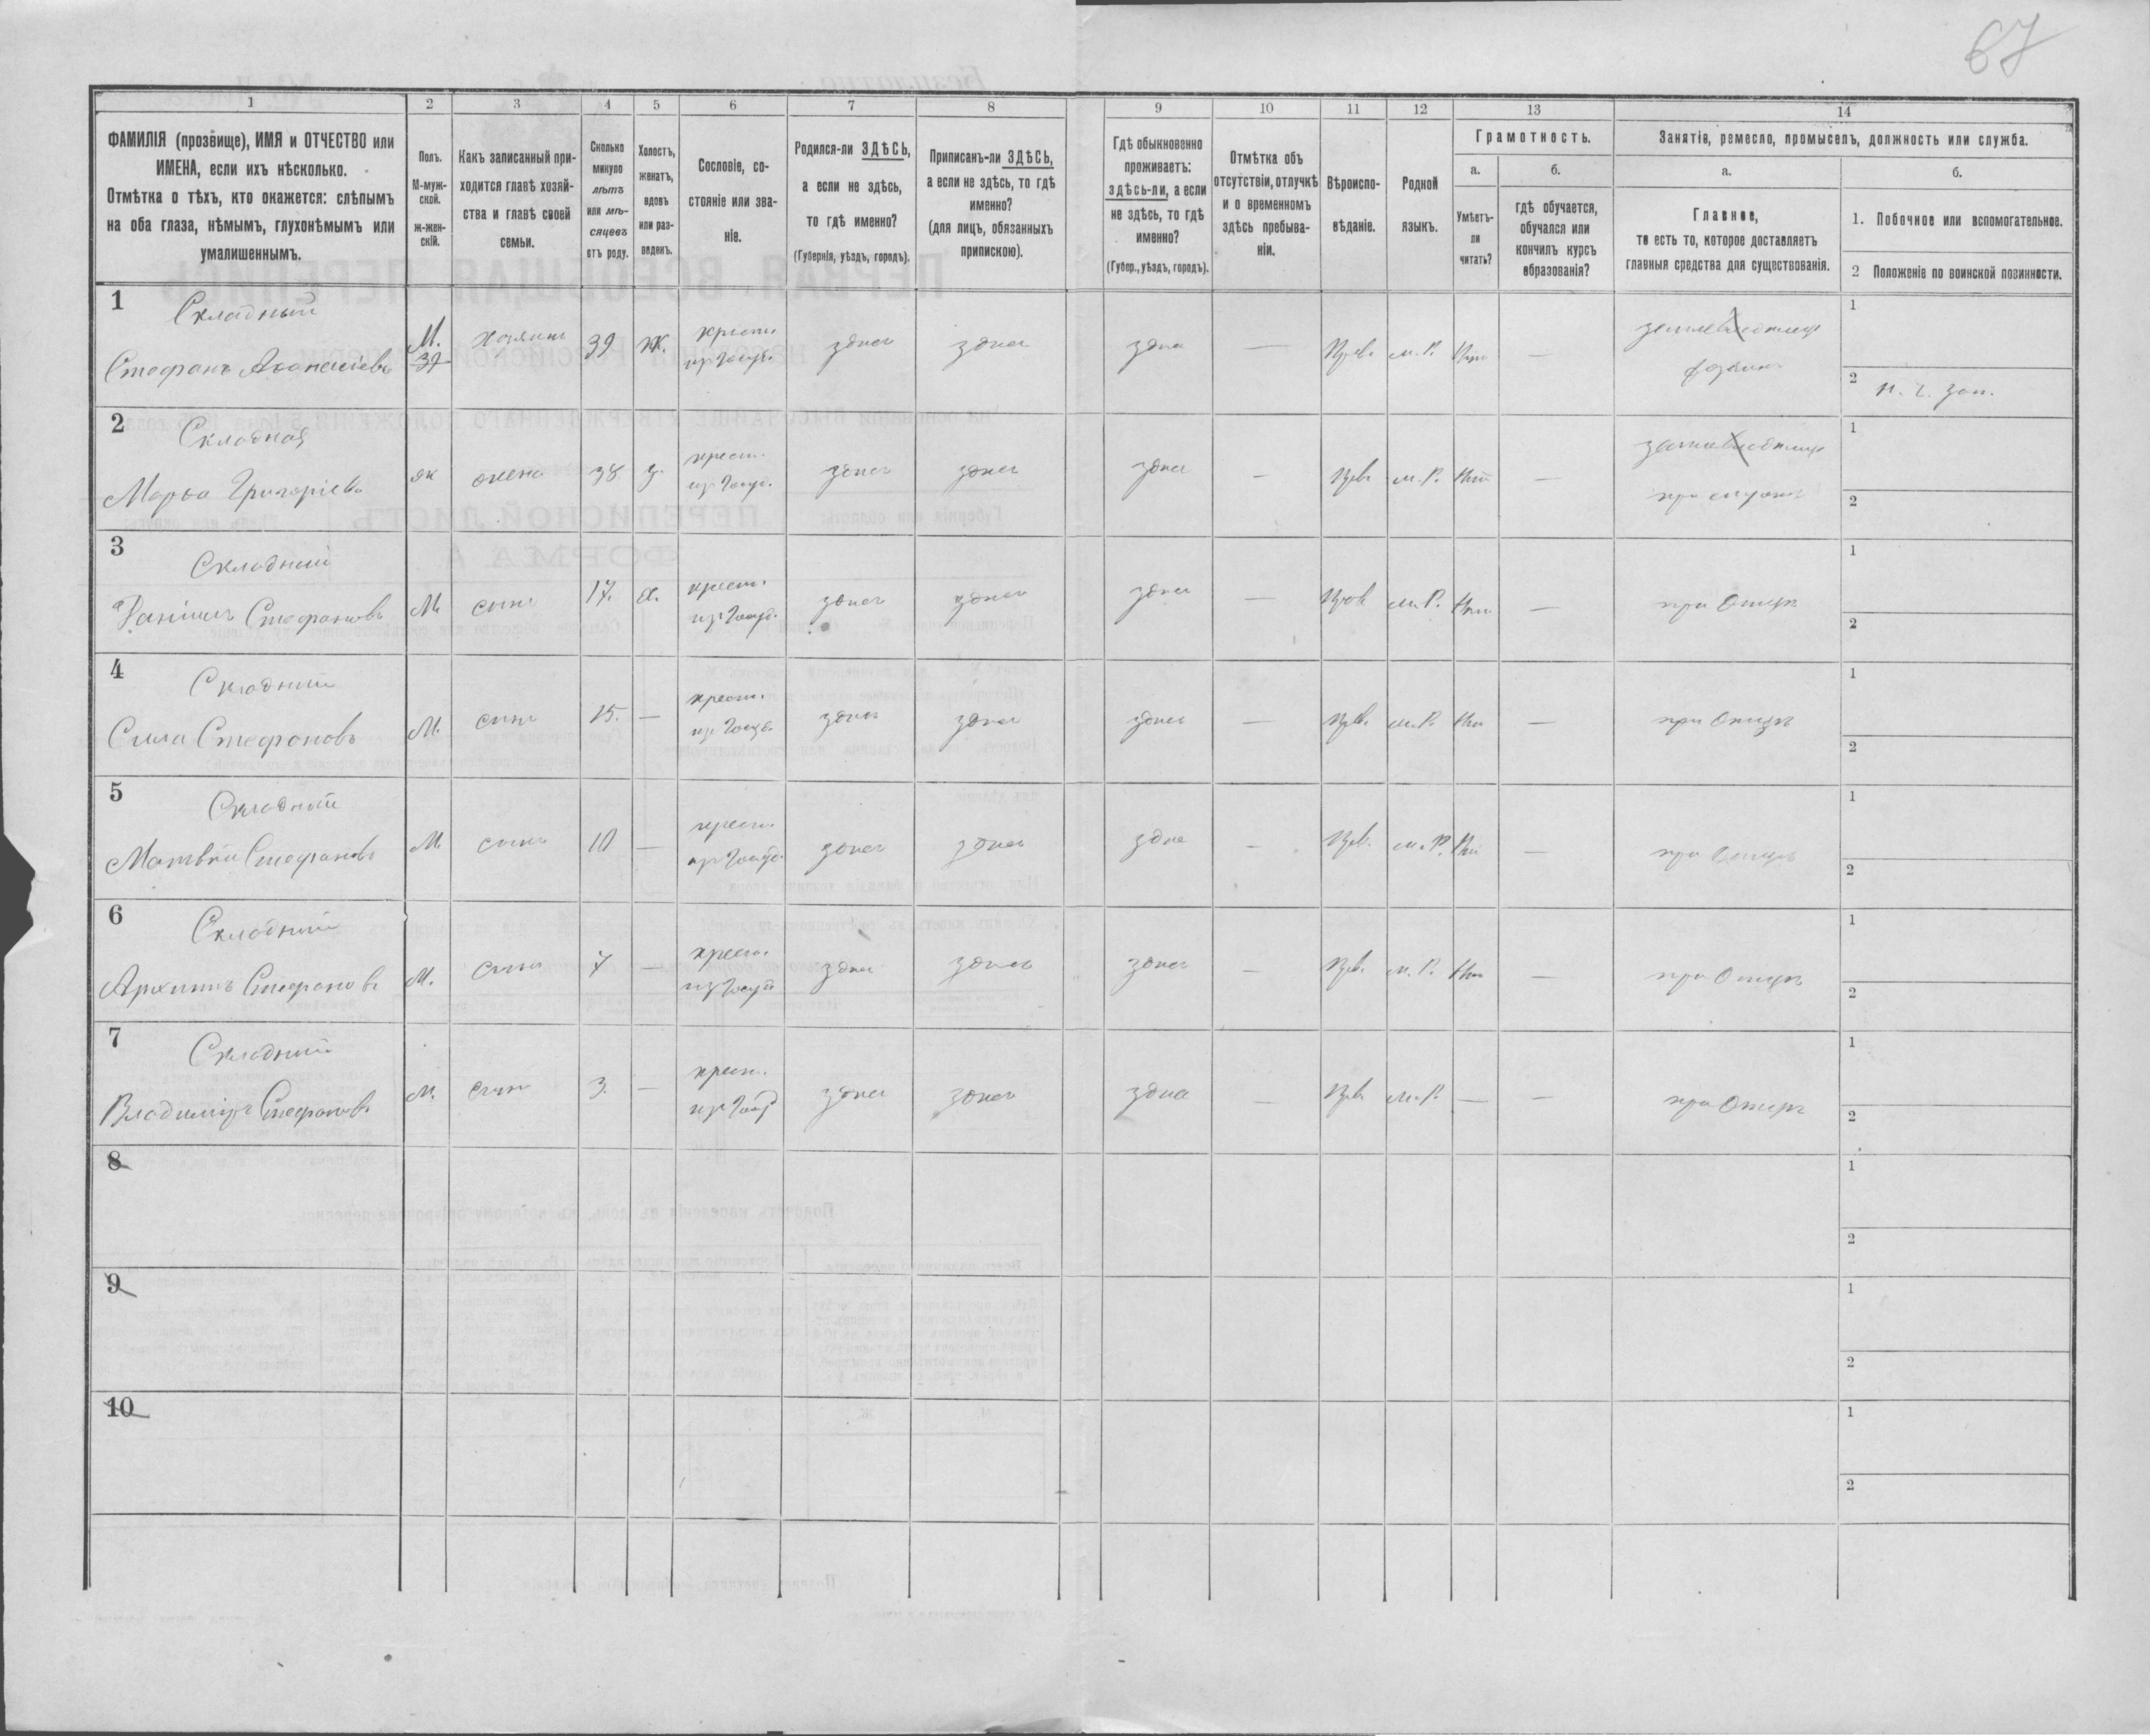 67
1 2 3 4 5 6 7 8 9 10 11 12 13 14
ФАМИЛІЯ (прозвище), ИМЯ и ОТЧЕСТВО или
ИМЕНА, если ихъ нѣсколько.
Отмѣтка о тѣхъ, кто окажется: слѣпымъ
на оба глаза, нѣмымъ, глухонѣмымъ или
умалишеннымъ.
Полъ.
М-муж-
ской.
ж-жен-
скій.
Какъ записанный при-
ходится главѣ хозяй-
ства и главѣ своей
семьи.
Сколько
минуло
лѣтъ
или мѣ-
сяцевъ
отъ роду.
Холостъ,
женатъ,
вдовъ
или раз-
веденъ.
Сословіе, со-
стояніе или зва-
ніе.
Родился-ли ЗДѢСЬ,
а если не здѣсь,
то гдѣ именно?
(Губернія, уѣздъ, городъ).
Приписанъ-ли ЗДѢСЬ,
а если не здѣсь, то гдѣ
именно?
(для лицъ, обязанныхъ
припискою).
Гдѣ обыкновенно
проживаетъ:
здѣсь-ли, а если
не здѣсь, то гдѣ
именно?
(Губер., уѣздъ, городъ).
Отмѣтка объ
отсутствіи, отлучкѣ
и о временномъ
здѣсь пребыва-
ніи.
Вѣроиспо-
вѣданіе.
Родной
языкъ.
Грамотность.
а.
Умѣетъ-
ли
читать?
б.
гдѣ обучается,
обучался или
кончилъ курсъ
образованія?
Занятія, ремесло, промыселъ, должность или служба.
а.
Главное,
то есть то, которое доставляетъ
главныя средства для существованія.
б.
1. Побочное или вспомогательное.
2 Положеніе по воинской повинности.
1 Складный
Стефанъ Аѳанасіевъ М. 39 хозяинъ 39 ж. крест. из госуд. здесь здесь здесь — Прав. м. Р. Нет — 1
хозяин 2
2 Складная
Марѳа Григоріева ж жена 38 з. крест. из госуд. здесь здесь здесь — Прав. м. Р. Нет — 1
при мужѣ 2
3 Складный
Даніилъ Стефановъ М сынъ 17. х. крест. из госуд. здесь здесь здесь — Прав м. Р. Нет — при Отцѣ 1
2
4 Складный
Сила Стефановъ М. сынъ 15. — крест. из госуд. здесь здесь здесь — Прав. м. Р. Нет — при Отцѣ 1
2
5 Складный
Матвѣй Стефановъ М сынъ 10 — крест. из госуд. здесь здесь здесь — Прав. м. Р. Нет — при Отцѣ 1
2
6 Складный
Архиппъ Стефановъ М. сынъ 7 — крест. из госуд здесь здесь здесь — Прав. м. Р. Нет — при Отцѣ 1
2
7 Складный
Владиміръ Стефановъ М. сынъ 3. — крест. из госуд здесь здесь здесь — Прав м. Р. — — при Отцѣ 1
2
8 1
2
9 1
2
10 1
2